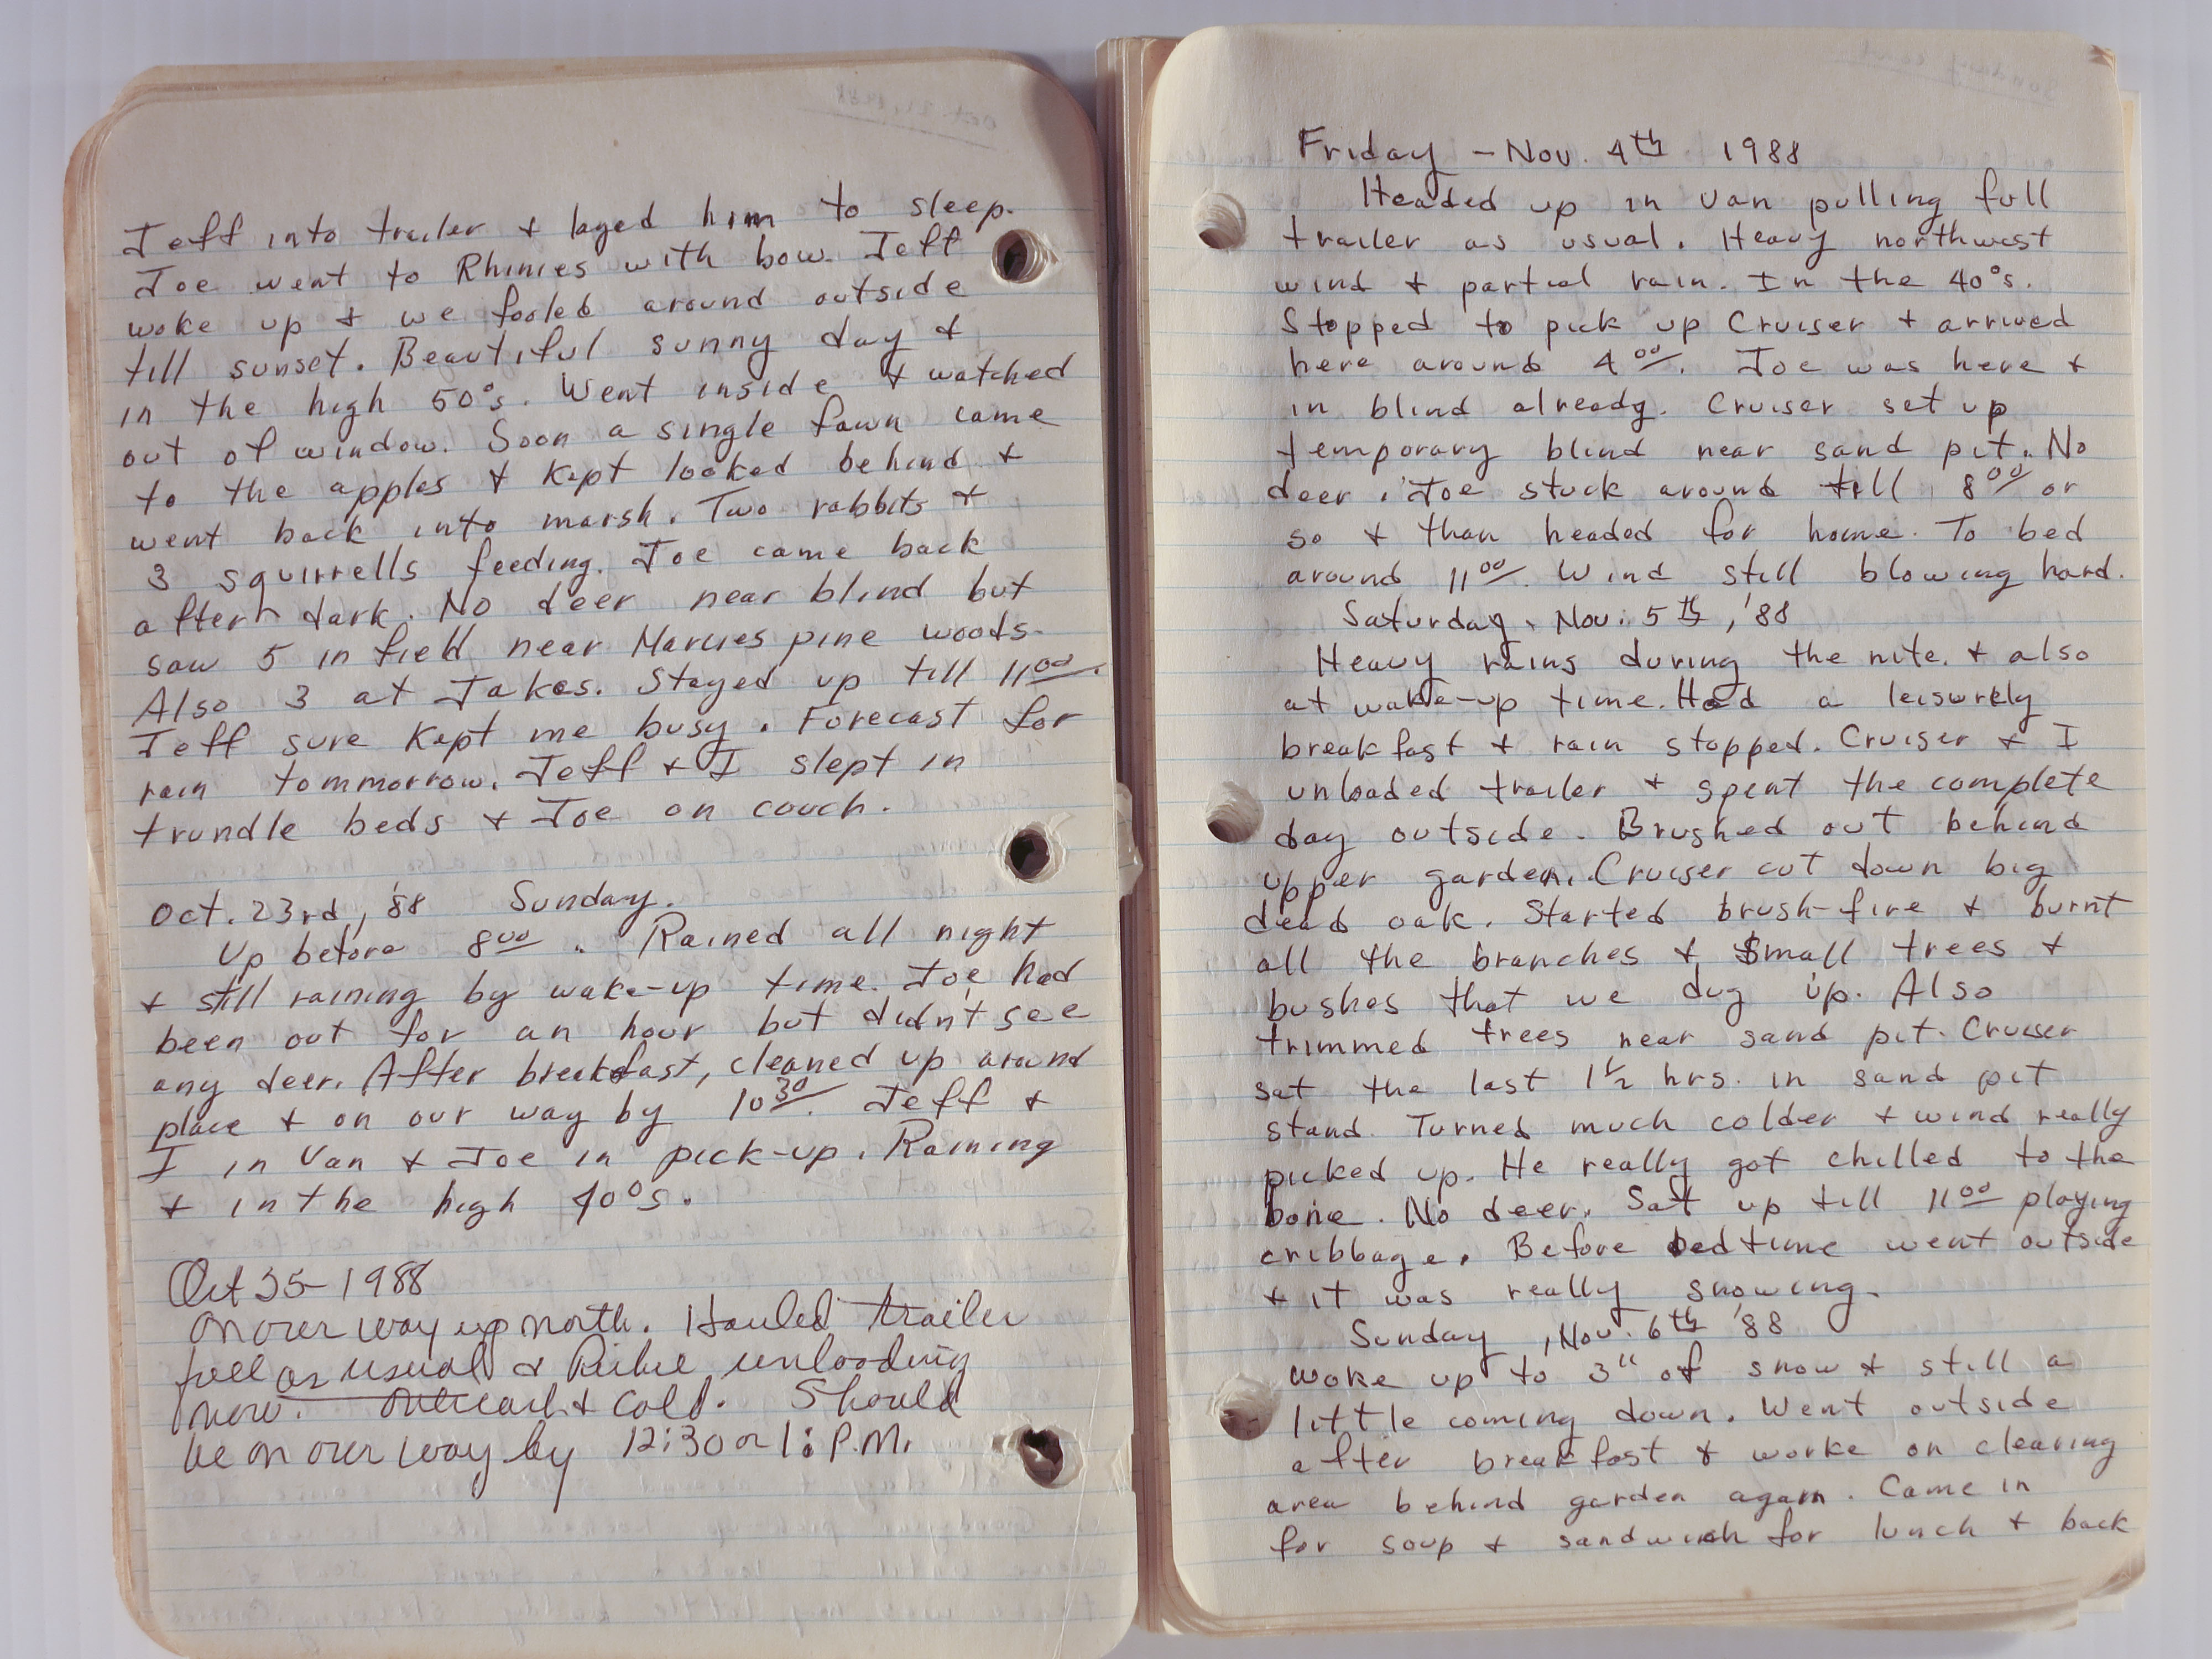 Jeff into trailer & layed him to sleep.
Joe went to Rhinies with bow. Jeff
woke up & we fooled around outside
till sunset. Beautiful sunny day &
in the high 50°s. Went inside & watched
out of window. Soon a single fawn came
to the apples & kept looked behind &
went back into marsh. Two rabbits &
3 squirrells feeding. Joe came back
after dark. No deer near blind but
saw 5 in field near Marcies pine woods.
Also 3 at Jakes. Stayed up till 11⁰⁰.
Jeff sure kept me busy. Forecast for
rain tommorrow. Jeff & I slept in
trundle beds & Joe on couch.
Oct. 23rd, '88 Sunday.
Up before 8⁰⁰. Rained all night
& still raining by wake-up time. Joe had
been out for an hour but didn't see
any deer. After breakfast, cleaned up around
place & on our way by 10³⁰. Jeff &
I in Van & Joe in pick-up. Raining
& in the high 40°s.
Oct 35-1988
On our way up north. Hauled trailer
full as usual & unloading
now. Overcast & cold. Should
be on our way by 12:30 or 1: P.M.
Friday - Nov. 4th 1988
Headed up in van pulling full
trailer as usual. Heavy northwest
wind & partial rain. In the 40°s.
Stopped to pick up Cruiser & arrived
here around 4⁰⁰. Joe was here &
in blind already. Cruiser set up
temporary blind near sand pit. No
deer. Joe stuck around till 8⁰⁰ or
so & than headed for home. To bed
around 11⁰⁰. Wind still blowing hard.
Saturday, Nov. 5th, '88
Heavy rains during the nite. & also
at wake-up time. Had a leisurely
breakfast & rain stopped. Cruiser & I
unloaded trailer & spent the complete
day outside. Brushed out behind
upper garden. Cruiser cut down big
dead oak. Started brush-fire & burnt
all the branches & small trees &
bushes that we dug up. Also
trimmed trees near sand pit. Cruiser
sat the last 1½ hrs. in sand pit
stand. Turned much colder & wind really
picked up. He really got chilled to the
bone. No deer. Sat up till 11⁰⁰ playing
cribbage. Before bedtime went outside
& it was really snowing.
Sunday, Nov. 6th '88
Woke up to 3" of snow & still a
little coming down. Went outside
after breakfast & worke on clearing
area behind garden again. Came in
for soup & sandwich for lunch & back